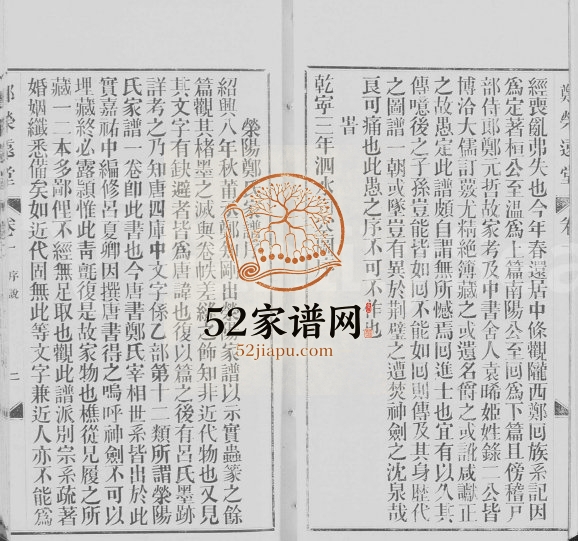 經喪亂弗失也今年春還居中條觀隴西鄭回族系記因
爲定著桓公至溫爲上篇南陽公至回爲下篇且傍稽戸
部侍郎鄭元哲故家考及中書舍人袁晞姫姓錄二公皆
博洽大儒訂覈尤精絶簿藏之或遺名爵之或訛咸獻正
之故愚定此譜頗自謂無所憾焉回進士也宜有以久其
傳噫後之子孫豈能皆如回不能如回則傳及其身歷代
之圖譜一朝或墜豈有異於荆璧之遭焚神劍之沈泉哉
良可痛也此愚之序不可不作也
旹
乾寧三年泗水
滎陽鄭
紹興八年秋莆
家譜以示實蟲篆之餘
篇觀其楮墨之滅與卷帙差
飾知非近代物也又見
其文字有缺避者皆爲唐諱也復以篇之後有呂氏墨跡
詳考之乃知唐四庫中文字係乙部第十二類所謂滎陽
氏家譜一卷卽此書也今唐書鄭氏宰相世系皆出於此
實嘉祐中編修呂夏卿因撰唐書得之嗚呼神劍不可以
埋藏終必露頴惟此靑氊復是故家物也樵從兄履之所
藏一二本多鄙俚不經無足取也觀此譜派別宗系疏著
婚姻纖悉備矣如近代固無此等文字兼近人亦不能爲
鄭滎遠堂
卷一
序說
二
52家谱网
52jiapu.com